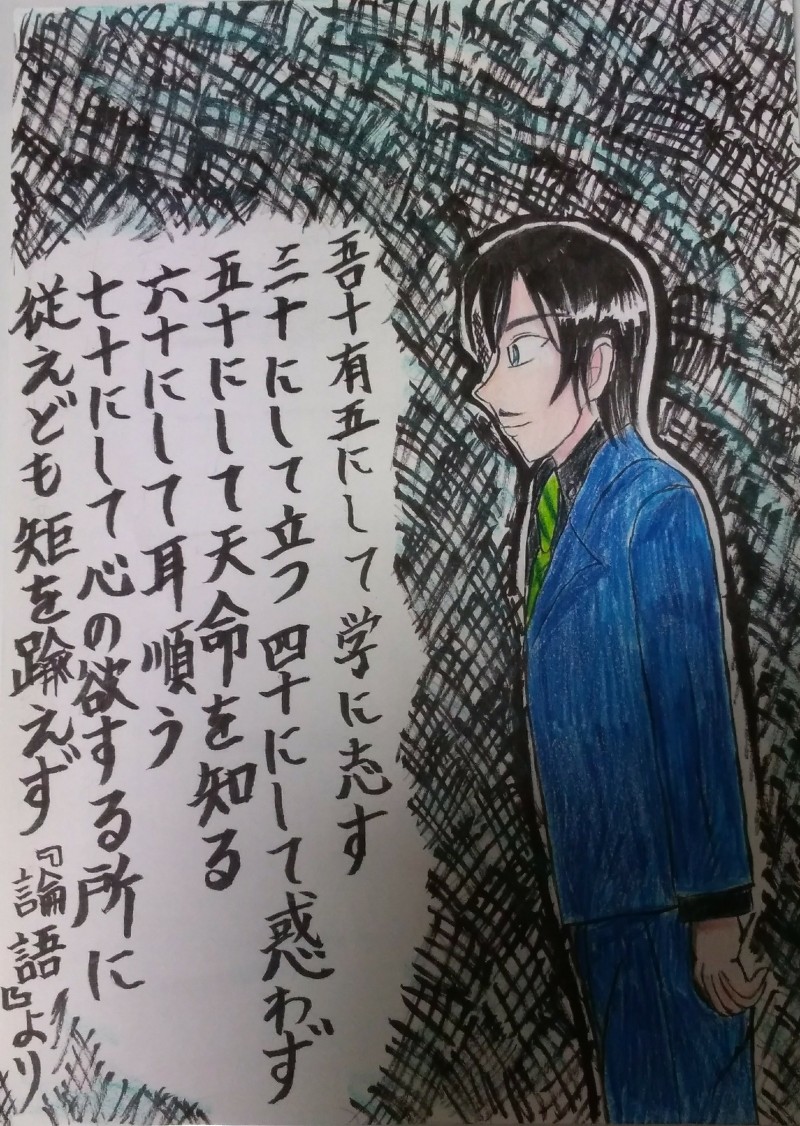 吾十有五にして学に志す
三十にして立つ 四十にして惑わず
五十にして天命を知る
六十にして耳順う
七十にして心の欲する所に
従えども矩を踰えず『論語』より